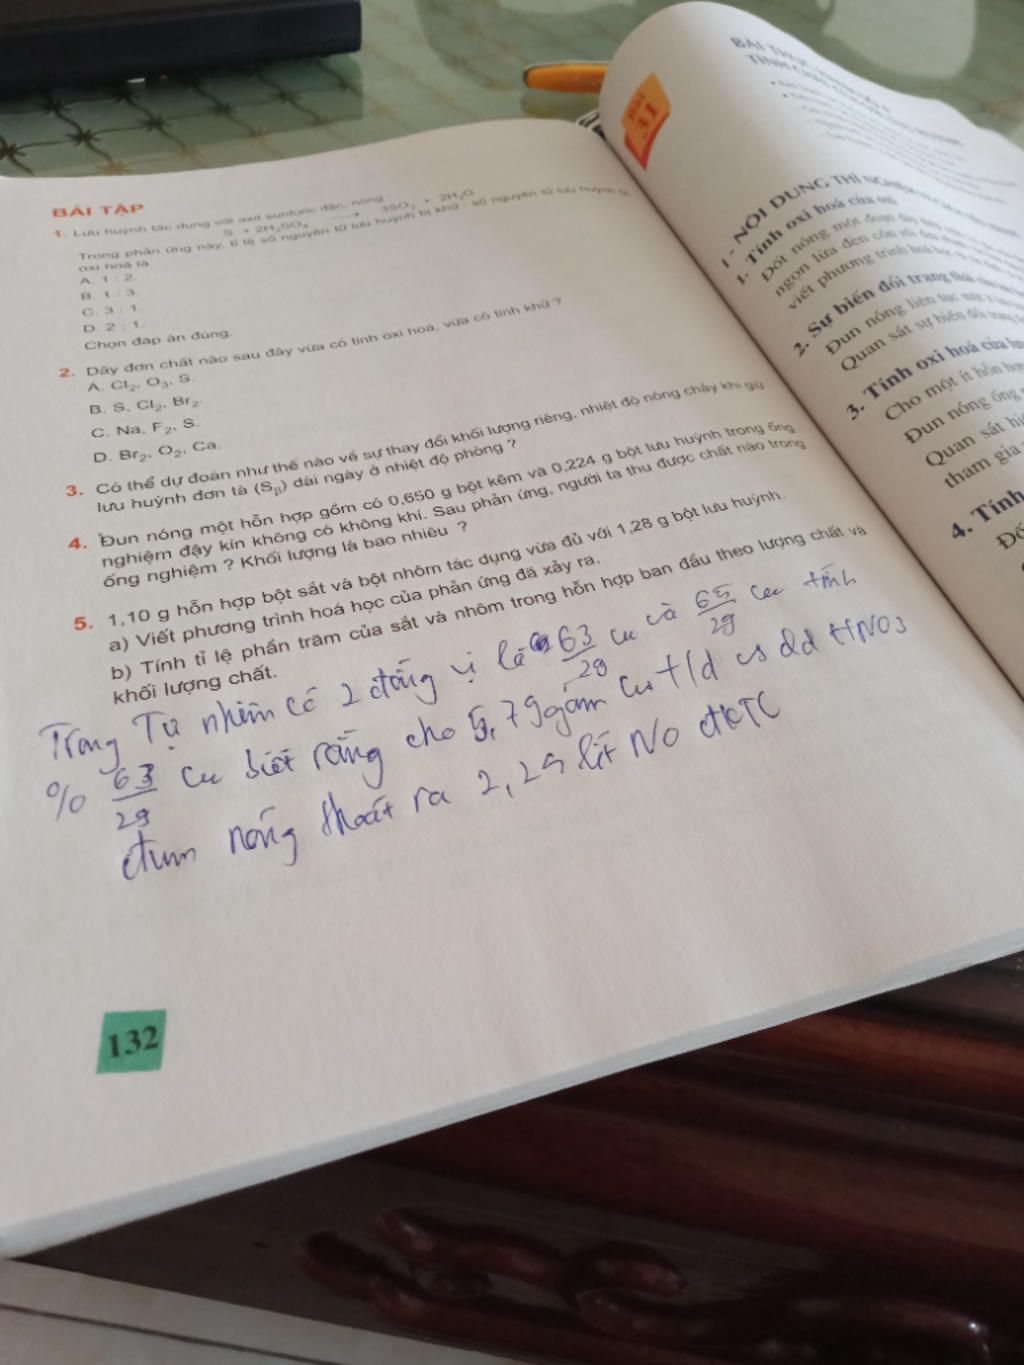 BÀI TẬP
1. Lưu huỳnh tác dụng với axit sunfuric đặc, nóng :
S + 2H₂SO₄ ⟶ 3SO₂ + 2H₂O
Trong phản ứng này, tỉ lệ số nguyên tử lưu huỳnh bị khử : số nguyên tử lưu huỳnh bị
oxi hoá là
A. 1 : 2.
B. 1 : 3.
C. 3 : 1.
D. 2 : 1.
Chọn đáp án đúng.
2. Dãy đơn chất nào sau đây vừa có tính oxi hoá, vừa có tính khử ?
A. Cl₂, O₃, S.
B. S, Cl₂, Br₂.
C. Na, F₂, S.
D. Br₂, O₂, Ca.
3. Có thể dự đoán như thế nào về sự thay đổi khối lượng riêng, nhiệt độ nóng chảy khi giữ
lưu huỳnh đơn tà (Sβ) dài ngày ở nhiệt độ phòng ?
4. Đun nóng một hỗn hợp gồm có 0,650 g bột kẽm và 0,224 g bột lưu huỳnh trong ống
nghiệm đậy kín không có không khí. Sau phản ứng, người ta thu được chất nào trong
ống nghiệm ? Khối lượng là bao nhiêu ?
5. 1,10 g hỗn hợp bột sắt và bột nhôm tác dụng vừa đủ với 1,28 g bột lưu huỳnh.
a) Viết phương trình hoá học của phản ứng đã xảy ra.
b) Tính tỉ lệ phần trăm của sắt và nhôm trong hỗn hợp ban đầu theo lượng chất và
khối lượng chất.
Trong Tự nhiên có 2 đồng vị là 63/29 Cu và 65/29 Cu tính
% 63/29 Cu biết rằng cho 5,79 gam Cu t/d vs dd HNO3
đun nóng thoát ra 2,24 lít NO đktc
132
Bài
31
I - NỘI DUNG THÍ NGHIỆM
1. Tính oxi hoá của oxi
Đốt nóng một đoạn dây
ngọn lửa đèn cồn rồi
viết phương trình hoá học
2. Sự biến đổi trạng thái
Đun nóng liên tục
Quan sát sự biến đổi trạng
3. Tính oxi hoá của
Cho một ít hỗn hợp
Đun nóng ống
Quan sát
tham gia
4. Tính